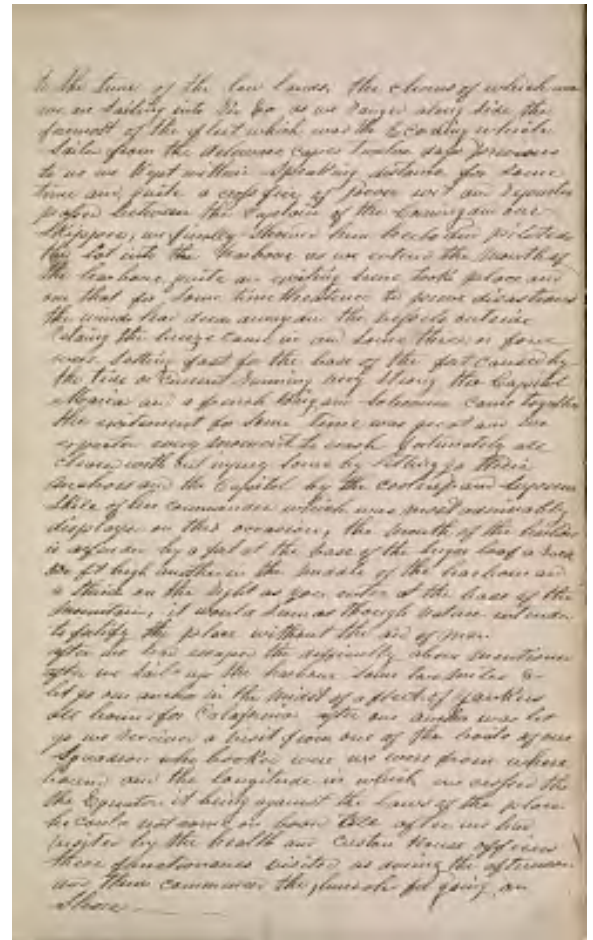 to the tune of the low lands, the chorus of which was
we are sailing into Rio as we ranged along side the
foremost of the fleet which was the which
sailed from the delaware capes twelve days previous
to us we kept within speaking distance for some
time and quite a cross fire of and
passed between the Captain of the and our
Skipper, we finally him and piloted
the lot into the harbour as we entered the mouth of
the harbour quite an exciting scene took place and
one that for some time threatened to prove disastrous
the winds had died away and the vessels outside
the breeze came in and some three or four
were setting fast for the base of the fort caused by
the tide or current running very strong the Capitol
Maria and a french Brig and Schooner came together
the excitement for some time was great and we
expected every moment to crash fortunately all
cleared with out injury some by letting go their
anchors and the Capitol by the and
skill of her commander which was most admirably
displayed on this occasion, the mouth of the harbour
is by a fort at the base of the Sugar loaf a rock
ft high another in the middle of the harbour and
a third on the right as you enter at the base of the
mountain, it would seem as though nature intended
to fortify the place without the aid of man
after we had escaped the difficulty above mentioned
after we sailed up the harbour some two miles &
let go our anchor in the midst of a fleet of Yankees
all bound for California after our anchor was let
go we received a visit from one of the boats of our
Squadron who booked were we were from where
bound and the longitude in which we crossed the
the Equator it being against the laws of the place
he could not come on board till after we had
visited by the health and Custom House officers
these functionaries visited us during the afternoon
and then commenced the for going on
Shore